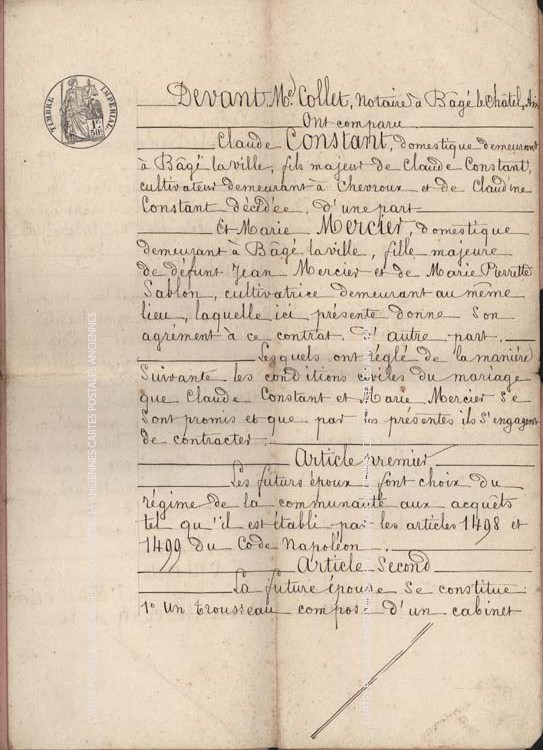 TIMBRE IMPÉRIAL
1F
50C
Devant Me Collet, Notaire à Bâgé le Châtel, Ain
Ont comparu
Claude Constant, domestique demeurant
à Bâgé la ville, fils majeur de Claude Constant,
cultivateur demeurant à Chevroux et de Claudine
Constant décédée, d'une part
Et Marie Mercier, domestique
demeurant à Bâgé la ville, fille majeure
de défunt Jean Mercier et de Marie Pierrette
Sablon, cultivatrice demeurant au même
lieu, laquelle ici présente donne son
agrément à ce contrat. D'autre part.
Lesquels ont réglé de la manière
suivante les conditions civiles du mariage
que Claude Constant et Marie Mercier se
sont promis et que par les présentes ils s'engagent
de contracter.
Article premier
Les futurs époux font choix du
régime de la communauté aux acquêts
tel qu'il est établi par les articles 1498 et
1499 du Code Napoléon.
Article Second
La future épouse se constitue
1° Un trousseau composé d'un cabinet
CARTES POSTALES ANCIENNES